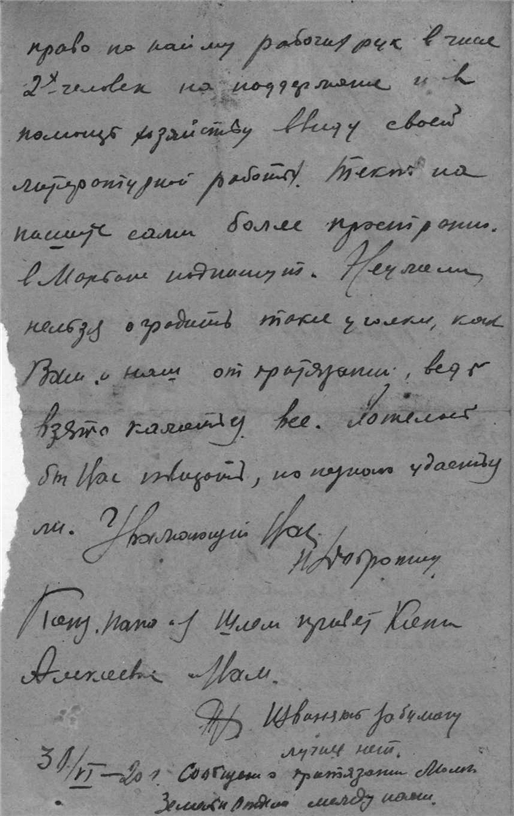 право по найму рабочих рук в числе
2х человек на поддержание и в
помощь хозяйству ввиду своей
литературной работы. Текст на
пишите сами более простран.
в подпишут. Неужели
нельзя оградить такие уголки, как
Ваш и наш от притязаний, ведь
взято кажется все. Хотелось
бы Вас повидать, но не удастся
ли. Уважающий Вас
Добротин
папа и я шлем привет
Алексеевне и Вам.
Извиняюсь за бумагу
лучше нет.
30/VI–20 г. Сообщение о притязании
между нами.